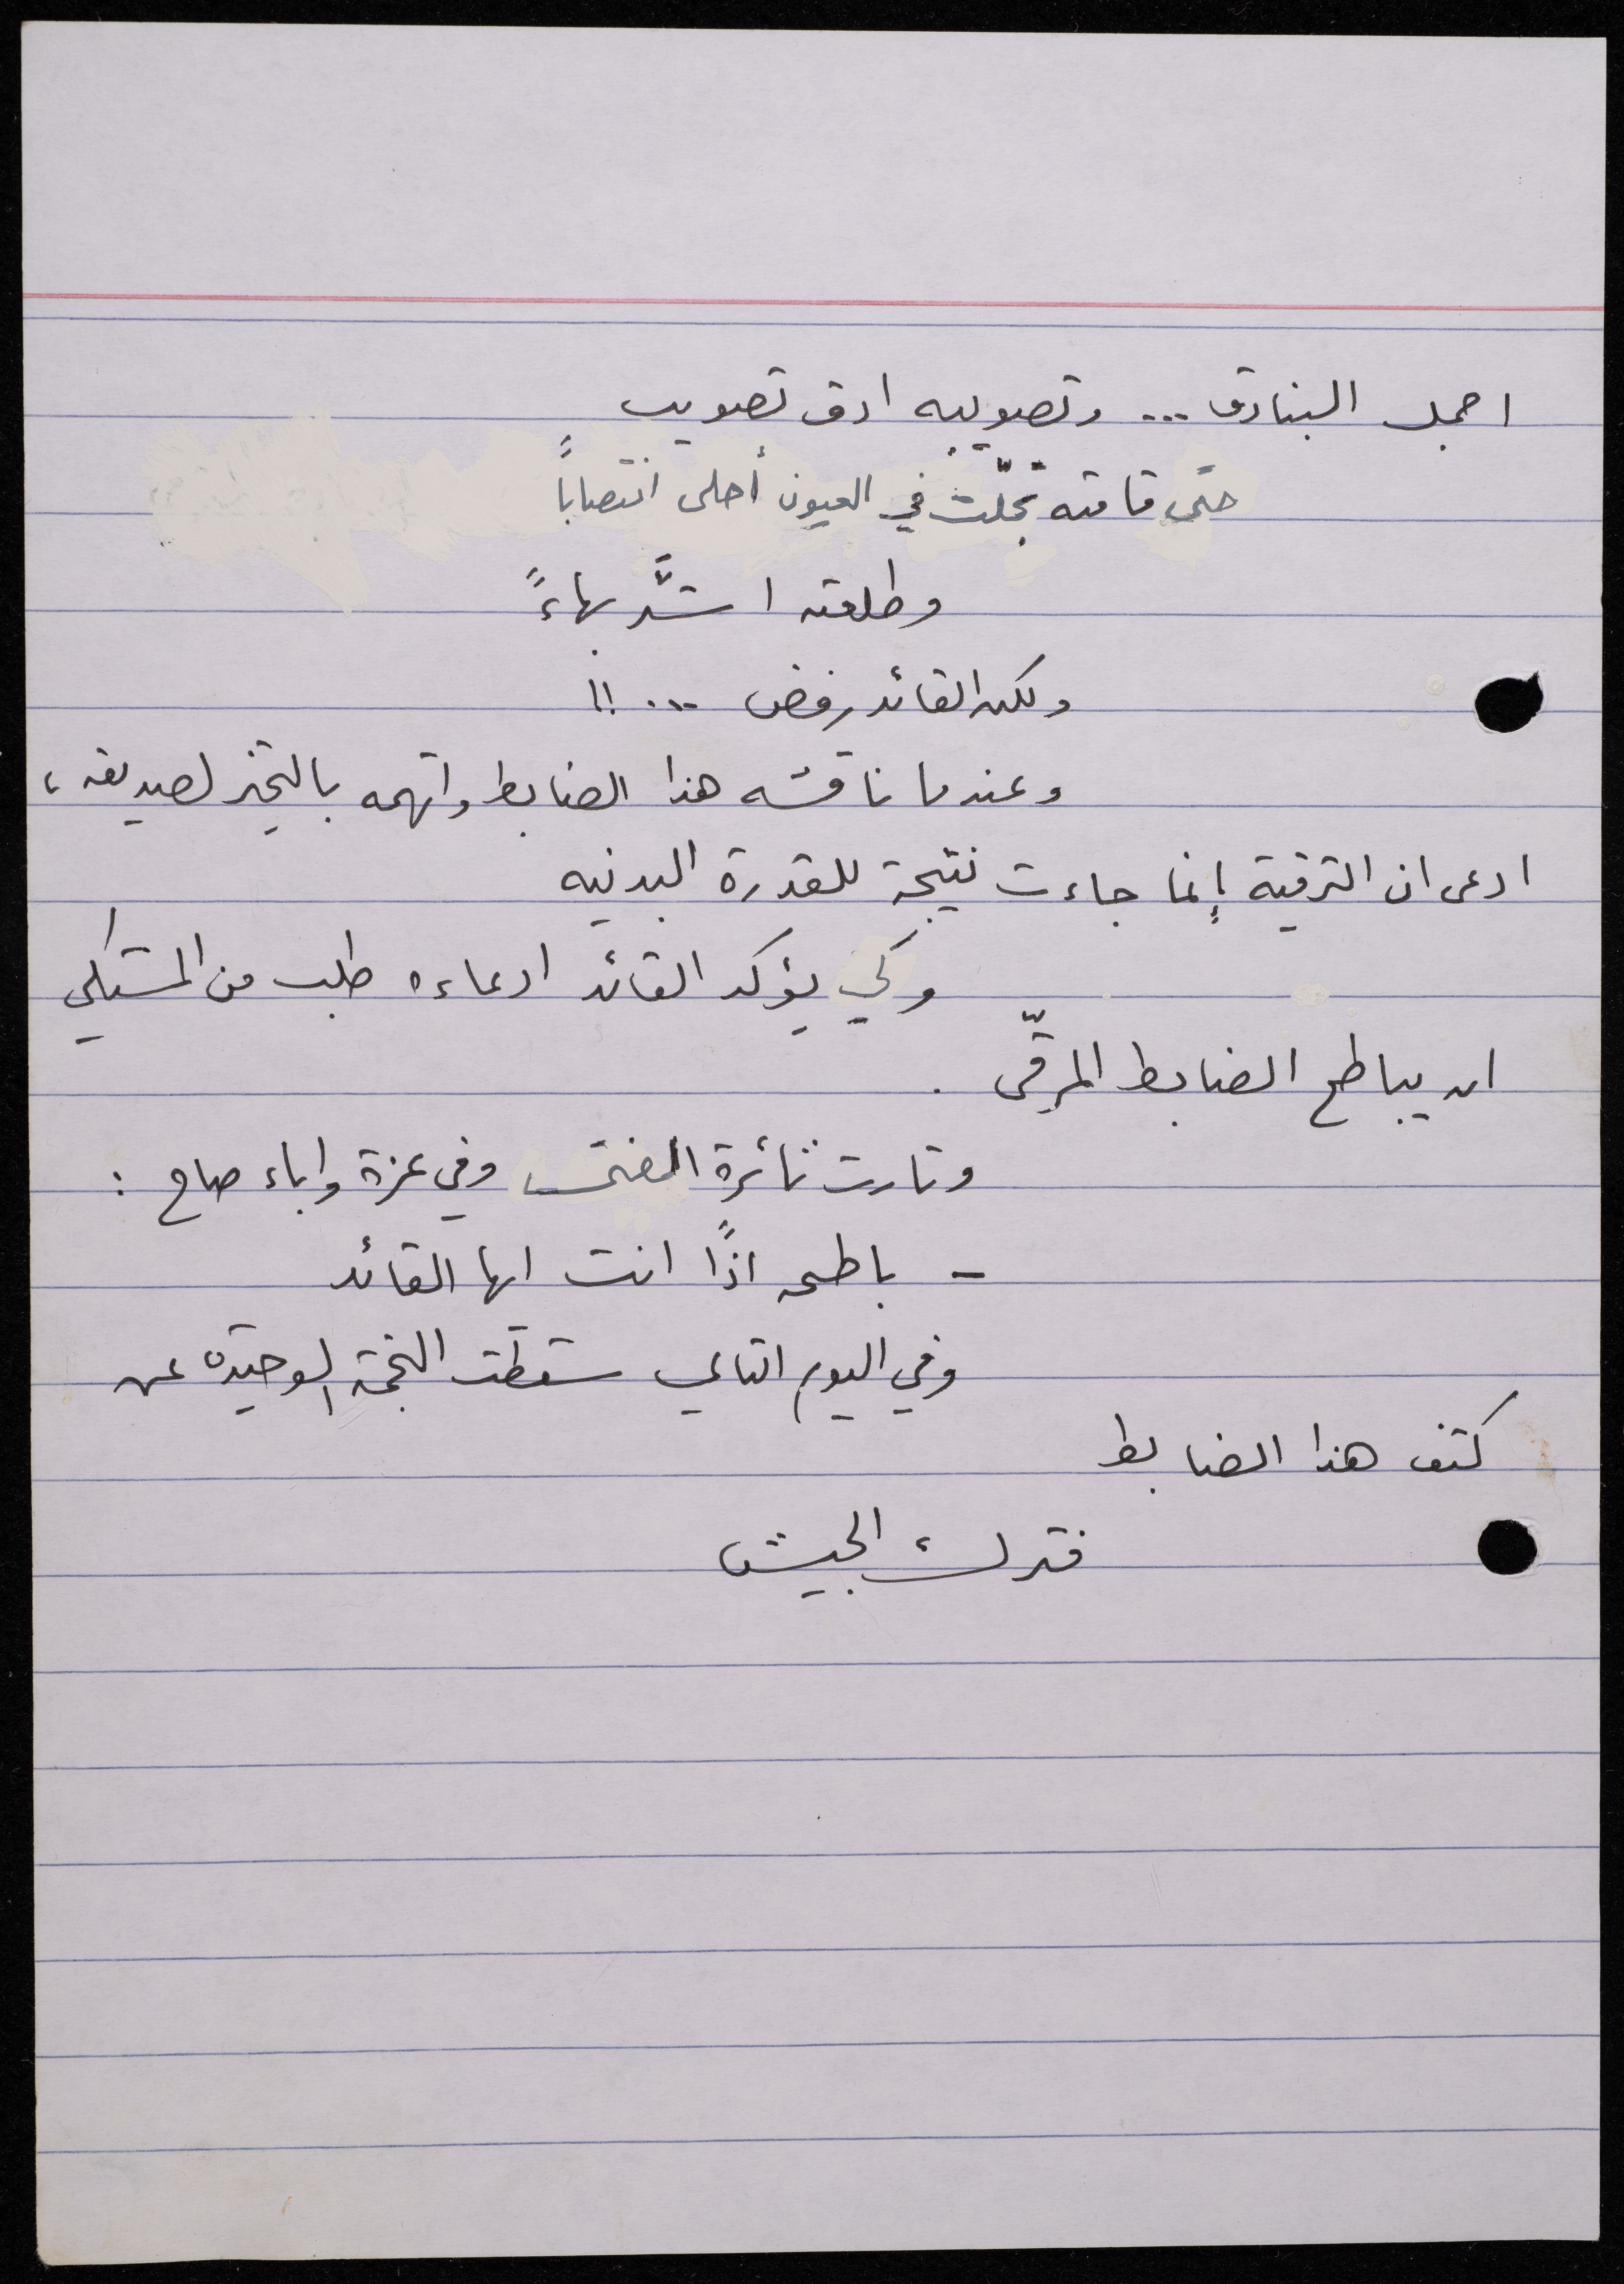 اجمل البنادق ... وتصويبه ادق تصويب
حتَّى قامته تجلّت في العيون أحلى انتصاباً
وطلعته اشدَّ بهاءً
ولكن القائد رفض ... !!
وعندما ناقشه هذا الضابط واتهمه بالتحيز لصديقه ،
ادعى ان الترقية إنما جاءت نتيجة للقدرة البدنيه
وكي يؤكد القائد ادعاءه طلب من المشتكي
ان يباطح الضابط المرقّى .
وثارت ثائرة وفي عزة واباء صاح :
- باطحه اذًا انت ايها القائد
وفي اليوم التالي سقطت النجمة الوحيدة عن
كتف هذا الضابط
فترك الجيش